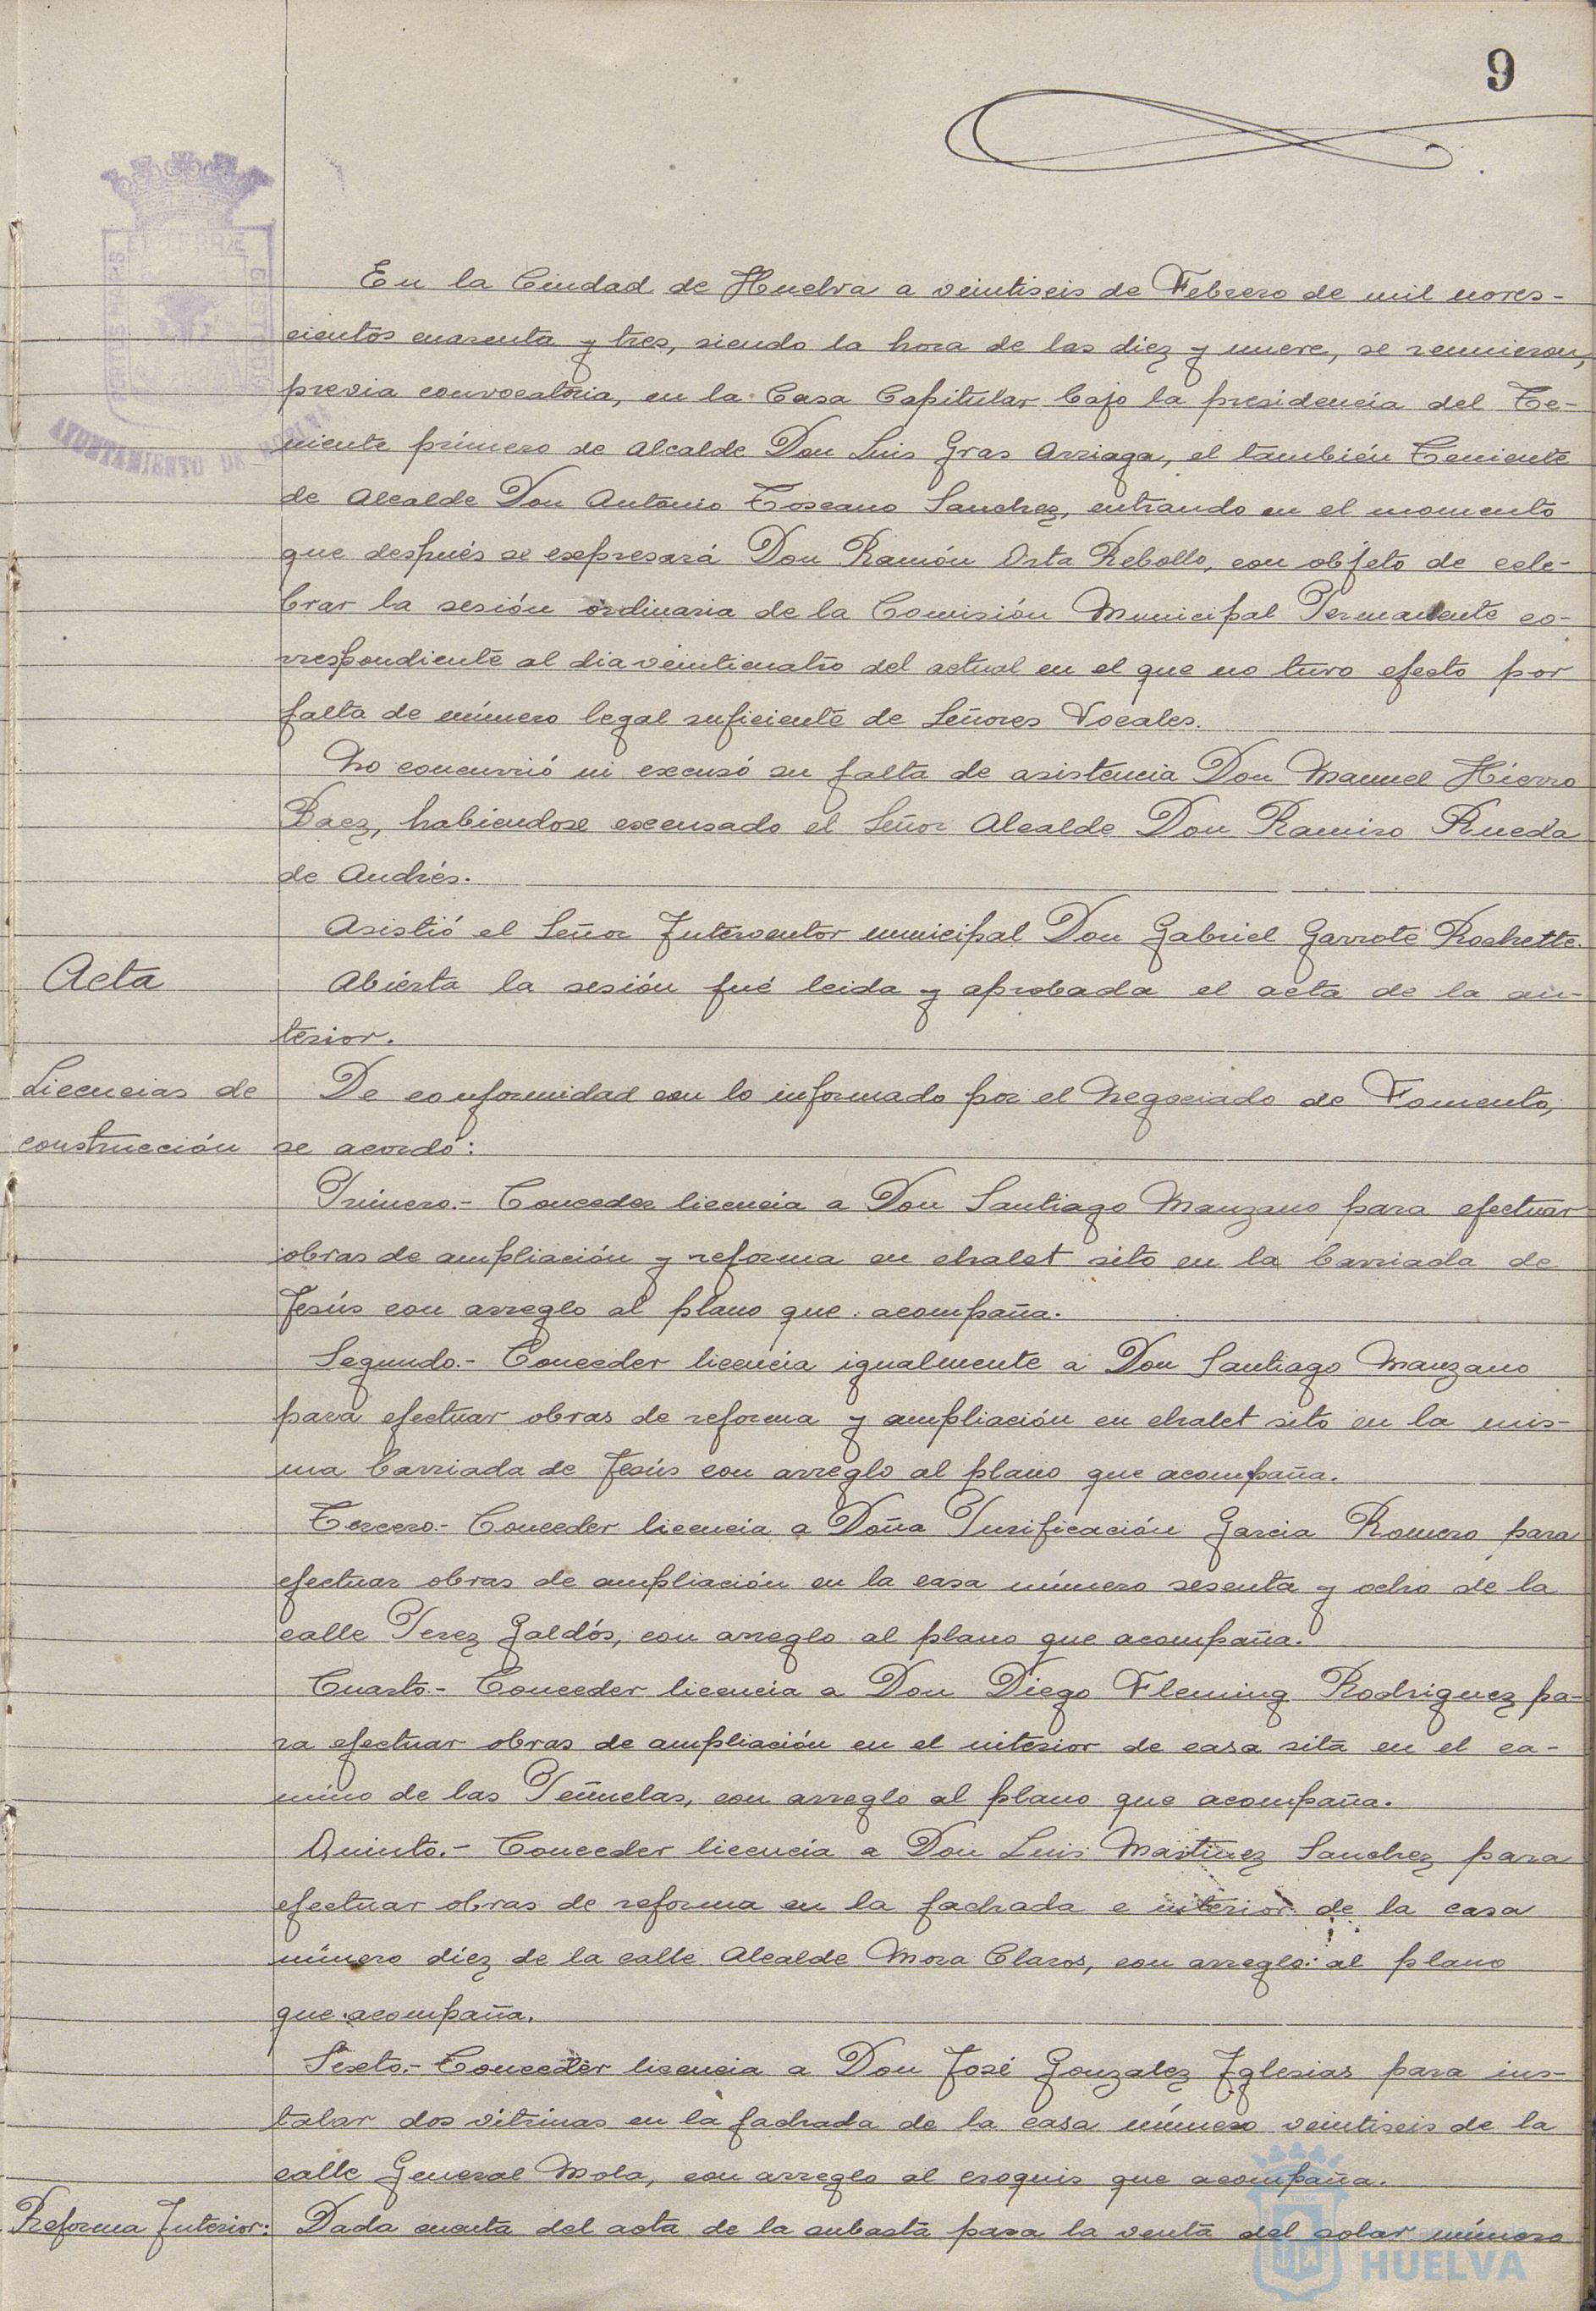 9
En la Ciudad de Huelva a veintiseis de Febrero de mil noves-
cientos cuarenta y tres, siendo la hora de las diez y nueve, se reunieron,
previa convocatoria, en la Casa Capitular bajo la presidencia del Te-
niente primero de Alcalde Don Luis Gras Arriaga, el también Teniente
de Alcalde Don Antonio Toscano Sanchez, entrando en el momento
que después se expresará Don Ramón Orta Rebollo, con objeto de cele-
brar la sesión ordinaria de la Comisión Municipal Permanente co-
rrespondiente al dia veinticuatro del actual en el que no tuvo efecto por
falta de número legal suficiente de Señores Vocales.
No concurrió ni excusó su falta de asistencia Don Manuel Hierro
Baez, habiendose excusado el Señor Alcalde Don Ramiro Rueda
de Andrés.
Asistió el Señor Interventor municipal Don Gabriel Garrote Rochette.
Acta
Abierta la sesión fué leida y aprobada el acta de la an-
terior.
Licencias de
construcción
De conformidad con lo informado por el Negociado de Fomento,
se acordó:
Primero.- Conceder licencia a Don Santiago Manzano para efectuar
obras de ampliación y reforma en chalet sito en la barriada de
Jesús con arreglo al plano que acompaña.
Segundo.- Conceder licencia igualmente a Don Santiago Manzano
para efectuar obras de reforma y ampliación en chalet sito en la mis-
ma barriada de Jesús con arreglo al plano que acompaña.
Tercero.- Conceder licencia a Doña Purificación Garcia Romero para
efectuar obras de ampliación en la casa número sesenta y ocho de la
calle Perez Galdós, con arreglo al plano que acompaña.
Cuarto.- Conceder licencia a Don Diego Fleming Rodriguez pa-
ra efectuar obras de ampliación en el interior de casa sita en el ca-
mino de las Peñuelas, con arreglo al plano que acompaña.
Quinto.- Conceder licencia a Don Luis Martinez Sanchez para
efectuar obras de reforma en la fachada e interior de la casa
número diez de la calle Alcalde Mora Claros, con arreglo al plano
que acompaña.
Sexto.- Conceder licencia a Don José Gonzalez Iglesias para ins-
talar dos vitrinas en la fachada de la casa número veintiseis de la
calle General Mola, con arreglo al croquis que acompaña.
Reforma Interior:
Dada cuenta del acta de la subasta para la venta del solar número
AYUNTAMIENTO DE
HUELVA